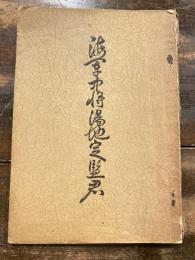 海軍中将湯地定監君